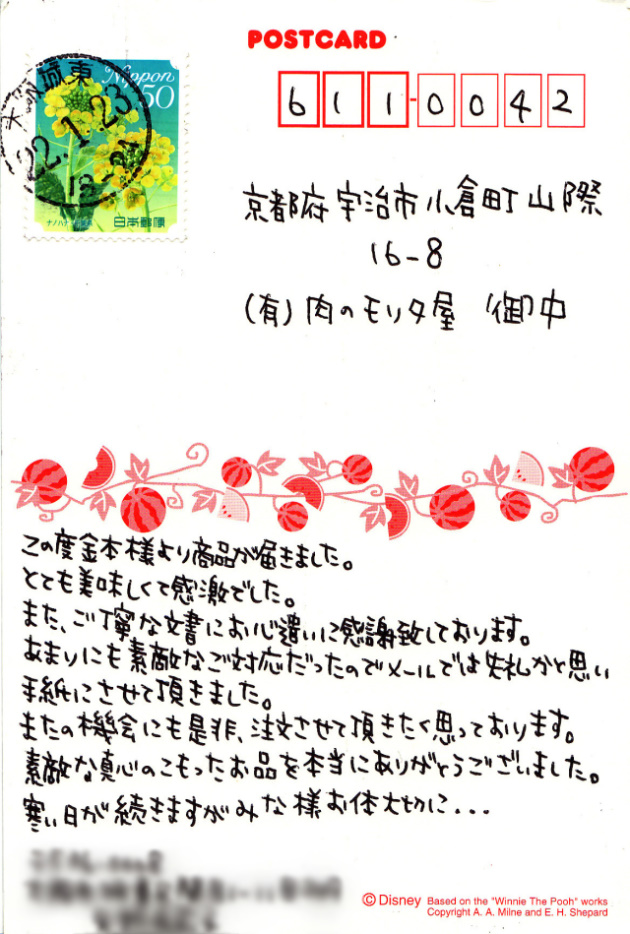 POSTCARD
Nippon
50
城東
22.1.23
日本郵便
611-0042
京都府宇治市小倉町山際
16-8
(有)肉のモリタ屋 御中
この度金本様より商品が届きました。
とても美味しくて感激でした。
また、ご丁寧な文書にお心遣いに感謝致しております。
あまりにも素敵なご対応だったのでメールでは失礼かと思い
手紙にさせて頂きました。
またの機会にも是非、注文させて頂きたく思っております。
素敵な真心のこもったお品を本当にありがとうございました。
寒い日が続きますがみな様お体大切に...
© Disney Based on the "Winnie The Pooh" works
Copyright A. A. Milne and E. H. Shepard